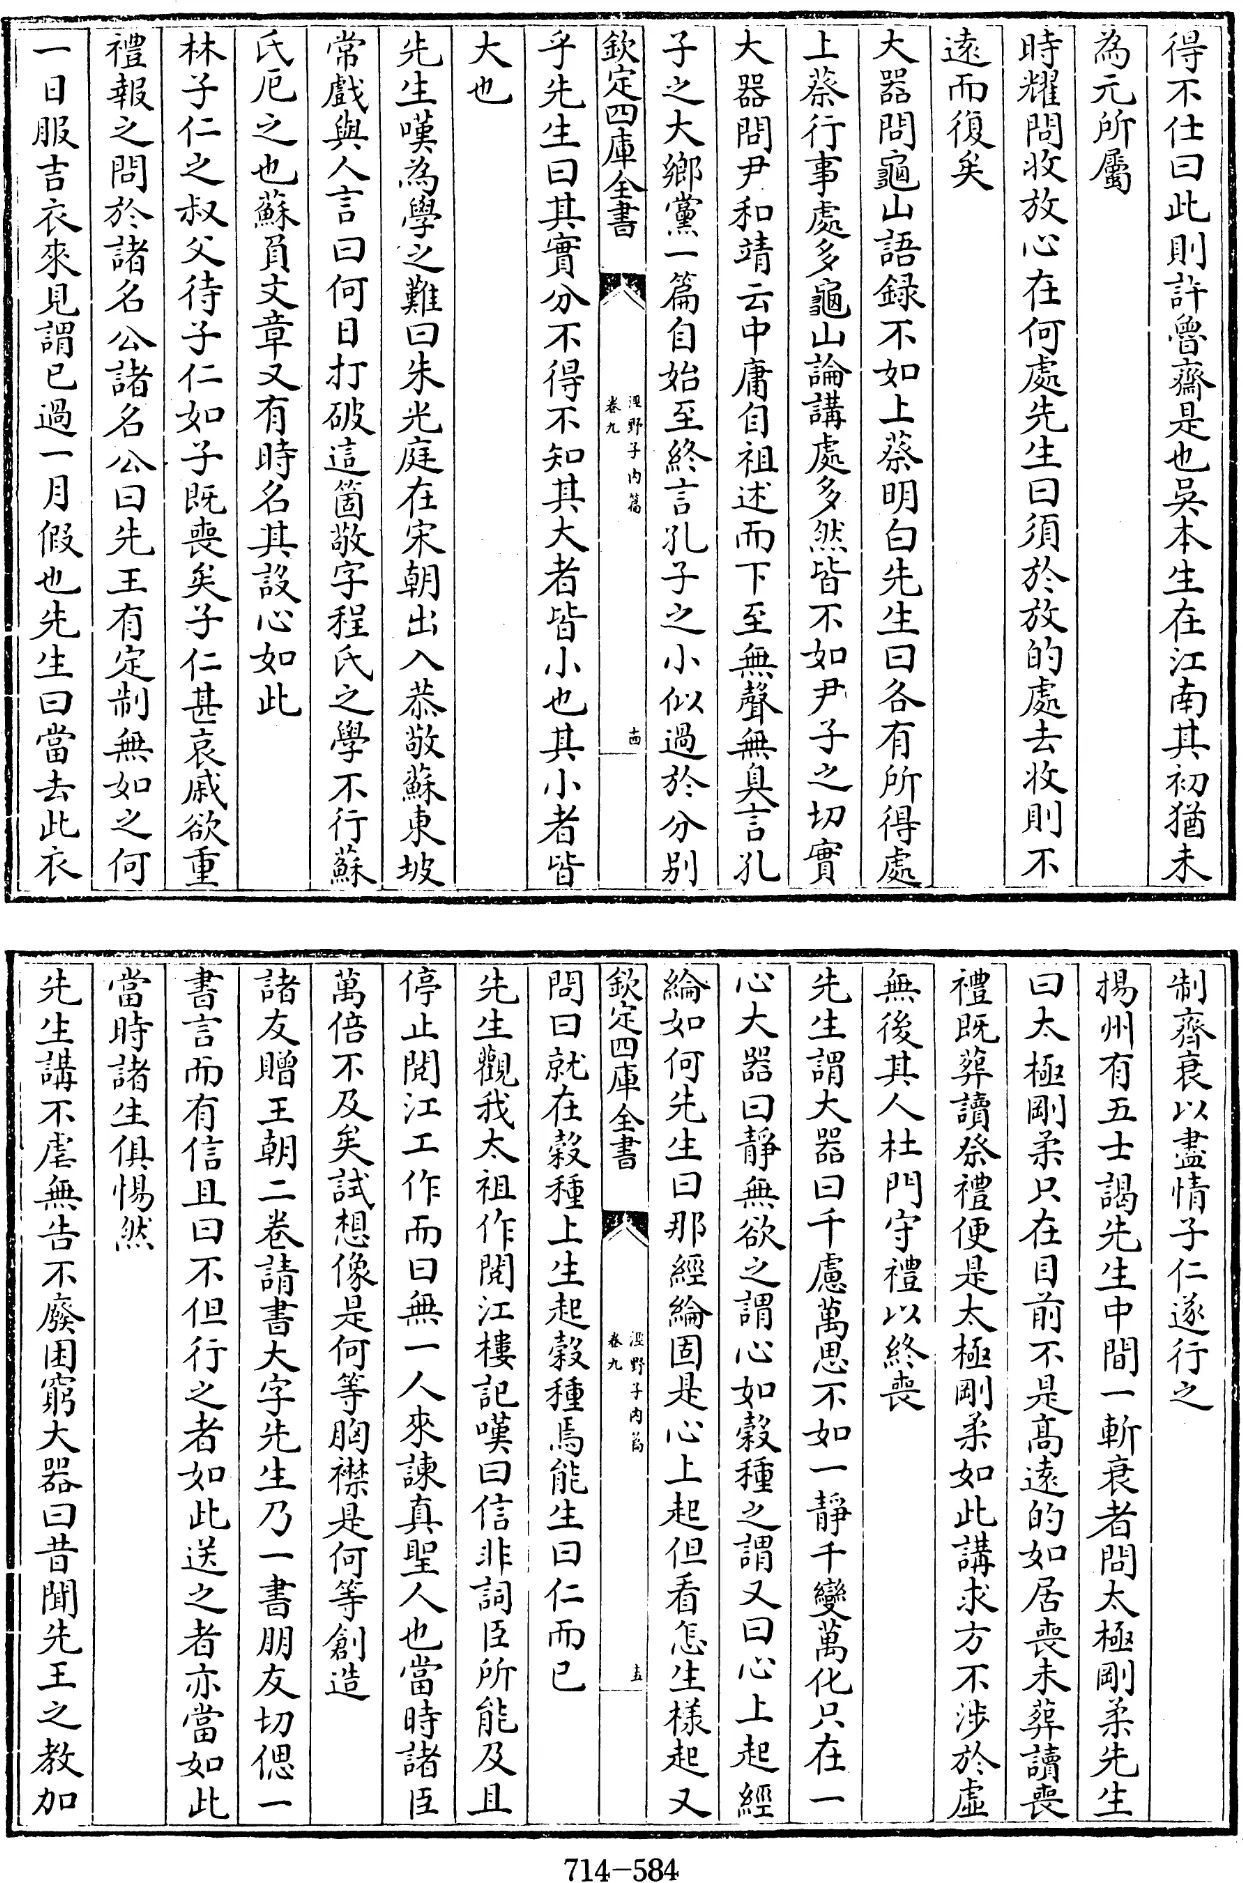 得不仕曰此則許魯齋是也吳本生在江南其初猶未
為元所屬
時耀問收放心在何處先生曰須於放的處去收則不
遠而復矣
大器問龜山語録不如上蔡明白先生曰各有所得處
上蔡行事處多龜山論講處多然皆不如尹子之切實
大器問尹和靖云中庸自祖述而下至無聲無臭言孔
子之大鄉黨一篇自始至終言孔子之小似過於分别
欽定四庫全書
涇野子内篇
卷九
十四
乎先生曰其實分不得不知其大者皆小也其小者皆
大也
先生嘆為學之難曰朱光庭在宋朝出入恭敬蘇東坡
常戲與人言曰何日打破這箇敬字程氏之學不行蘇
氏厄之也蘇負文章又有時名其設心如此
林子仁之叔父待子仁如子既喪矣子仁甚哀戚欲重
禮報之問於諸名公諸名公曰先王有定制無如之何
一日服吉衣來見謂已過一月假也先生曰當去此衣
制齊衰以盡情子仁遂行之
揚州有五士謁先生中間一斬衰者問太極剛柔先生
曰太極剛柔只在目前不是髙逺的如居喪未葬讀喪
禮既葬讀祭禮便是太極剛柔如此講求方不涉於虛
無後其人杜門守禮以終喪
先生謂大器曰千慮萬思不如一靜千變萬化只在一
心大器曰靜無欲之謂心如榖種之謂又曰心上起經
綸如何先生曰那經綸固是心上起但看怎生樣起又
欽定四庫全書
涇野子内篇
卷九
十五
問曰就在榖種上生起榖種焉能生曰仁而已
先生觀我太祖作閱江樓記嘆曰信非詞臣所能及且
停止閱江工作而曰無一人來諫真聖人也當時諸臣
萬倍不及矣試想像是何等胸襟是何等創造
諸友贈王朝二卷請書大字先生乃一書朋友切偲一
書言而有信且曰不但行之者如此送之者亦當如此
當時諸生俱惕然
先生講不虐無告不廢困窮大器曰昔聞先王之教加
714-584